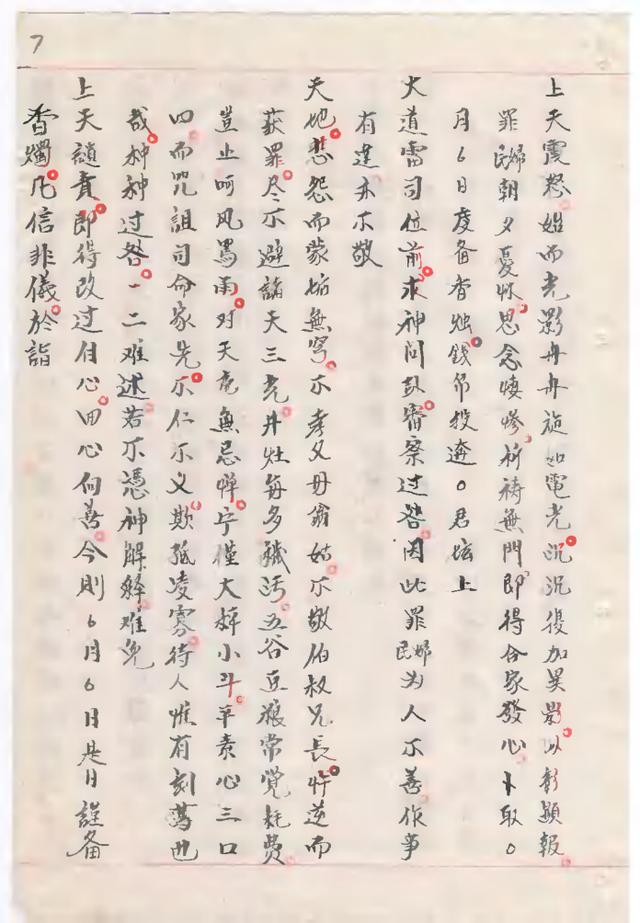 7
上天震怒。始而光影冉冉旋如電光。沉沉後加异影。以彰顯報。
罪民婦朝夕憂怀。思念悽慘。祈祷無門。即得合家發心卜取〇
月6日虔备香烛。錢帛投進〇君坛上
大道雷司位前。求神问卦。審察过咎。因此罪民婦为人不善。作事
有違。亦不敬
天地。悲怨而蒙垢無穹。不孝父母翁姑。不敬伯叔兄長。忤逆而
获罪。尽不避諱天三光。井灶每多穢污。五谷豆粮常覺耗费。
豈止呵风罵雨。对天亮無忌惮。宁權大秤小斗。平素心三口
四而咒詛司命家先。不仁不义。欺孤凌寡。待人惟有刻薄也
哉。种种过咎。一二难述。若不憑神解释。难免
上天譴責。即得改过付心。回心向善。今則6月6日是日謹备
香燭。凡信非儀。於詣